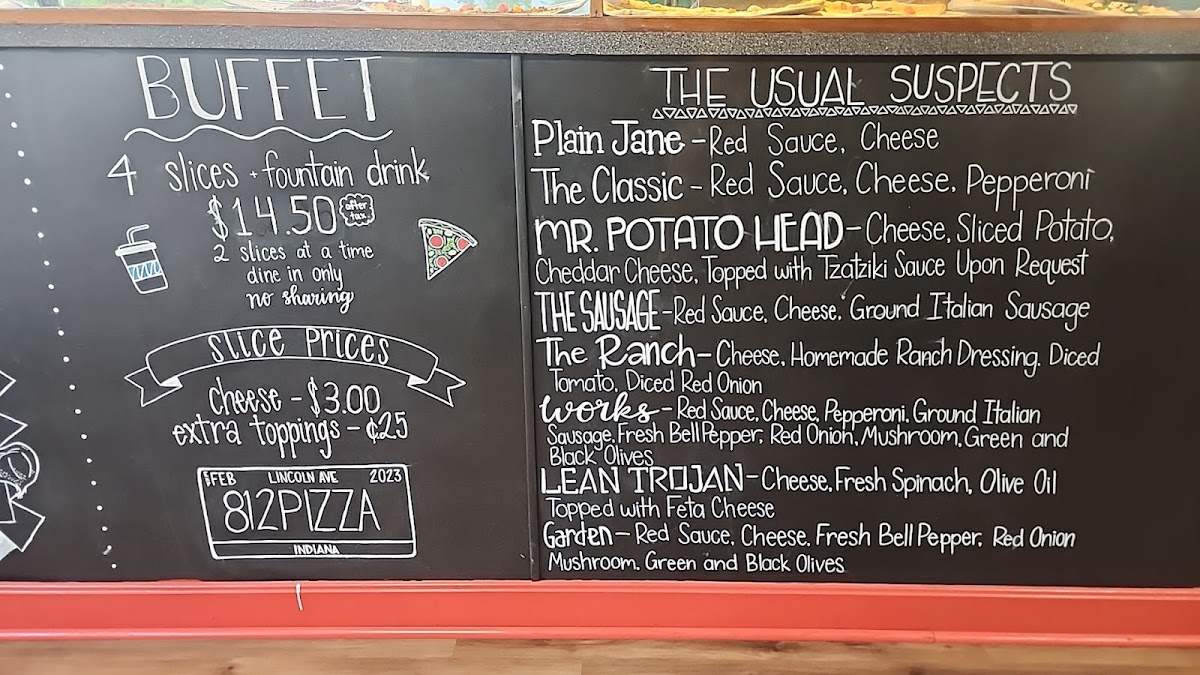 BUFFET
4 slices + fountain drink
$14.50 after tax
2 slices at a time
dine in only
no sharing
slice prices
cheese - $3.00
extra toppings - ¢25
FEB LINCOLN AVE 2023
812PIZZA
INDIANA
THE USUAL SUSPECTS
Plain Jane - Red Sauce, Cheese
The Classic - Red Sauce, Cheese, Pepperoni
MR. POTATO HEAD - Cheese, Sliced Potato,
Cheddar Cheese, Topped with Tzatziki Sauce Upon Request
THE SAUSAGE - Red Sauce, Cheese, Ground Italian Sausage
The Ranch - Cheese, Homemade Ranch Dressing, Diced
Tomato, Diced Red Onion
works - Red Sauce, Cheese, Pepperoni, Ground Italian
Sausage, Fresh Bell Pepper, Red Onion, Mushroom, Green and
Black Olives
LEAN TROJAN - Cheese, Fresh Spinach, Olive Oil
Topped with Feta Cheese
Garden - Red Sauce, Cheese, Fresh Bell Pepper, Red Onion
Mushroom, Green and Black Olives